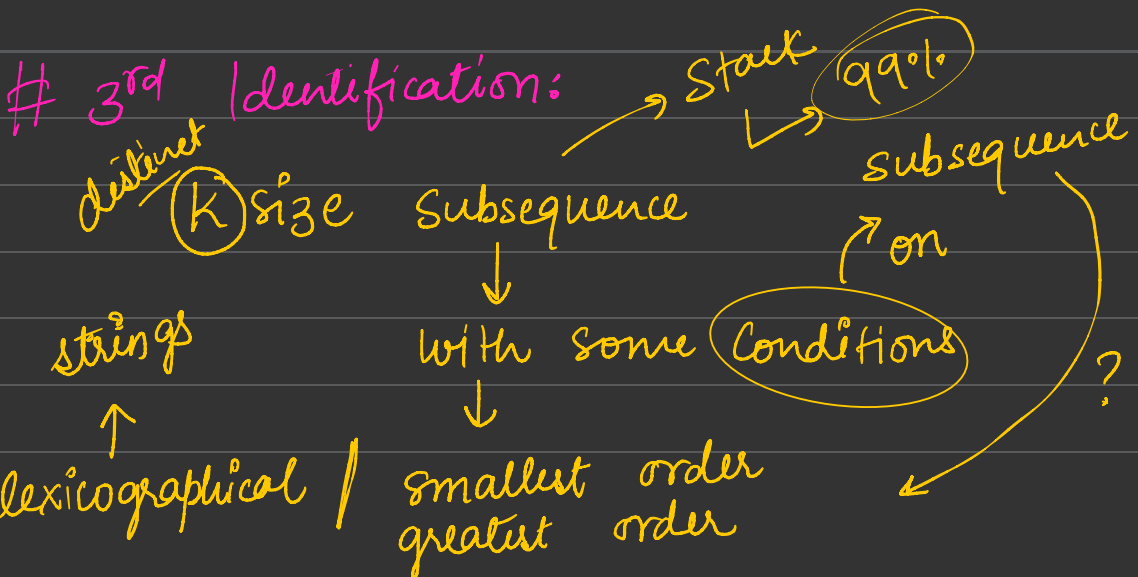 # 3rd Identification:
Stack 99%
distinct
k size subsequence
subsequence
on
strings
with some Conditions
?
lexicographical / smallest order
greatest order